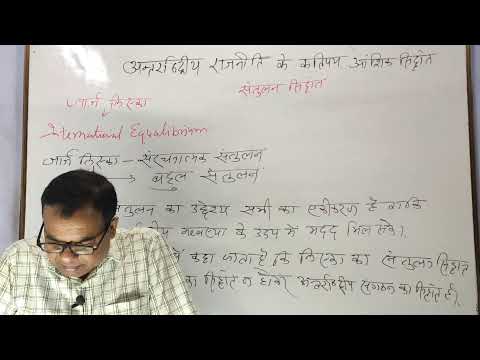 अन्तर्राष्ट्रीय राजनीति के कतिपय आंशिक सिद्धांत
संतुलन सिद्धांत
जार्ज लिस्का
International Equilibrium
जार्ज लिस्का – संरचनात्मक संतुलन
→ बहुल संतुलन
संतुलन का उद्देश्य सभी का एकीकरण है ताकि
व्यवस्था के उदय में मदद मिल सके।
कहा जाता है कि लिस्का का संतुलन सिद्धांत
का सिद्धांत न होकर अन्तर्राष्ट्रीय संगठन का सिद्धांत है।